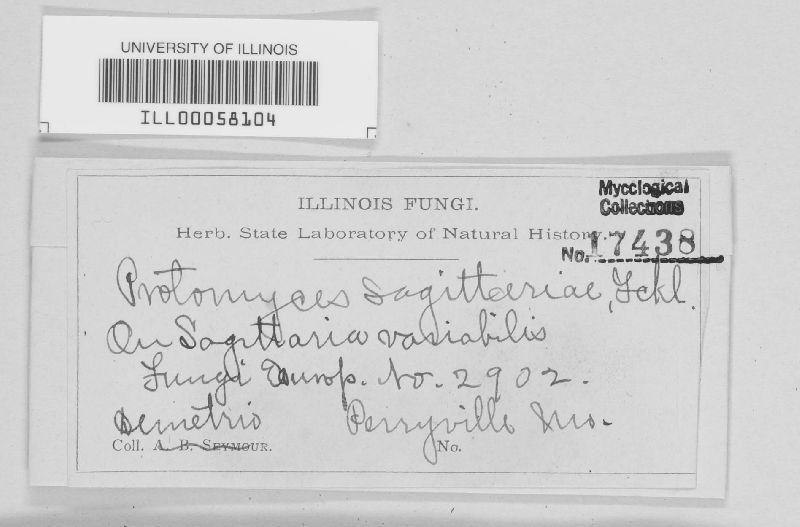 UNIVERSITY OF ILLINOIS
ILL00058104
ILLINOIS FUNGI.
Mycological
Collections
Herb. State Laboratory of Natural History.
No. 17438
Protomyces Sagittariae, Fckl.
On Sagittaria variabilis
Fungi Europ. No. 2902.
Demetrio Perryville Mo.
Coll. A. B. SEYMOUR. No.